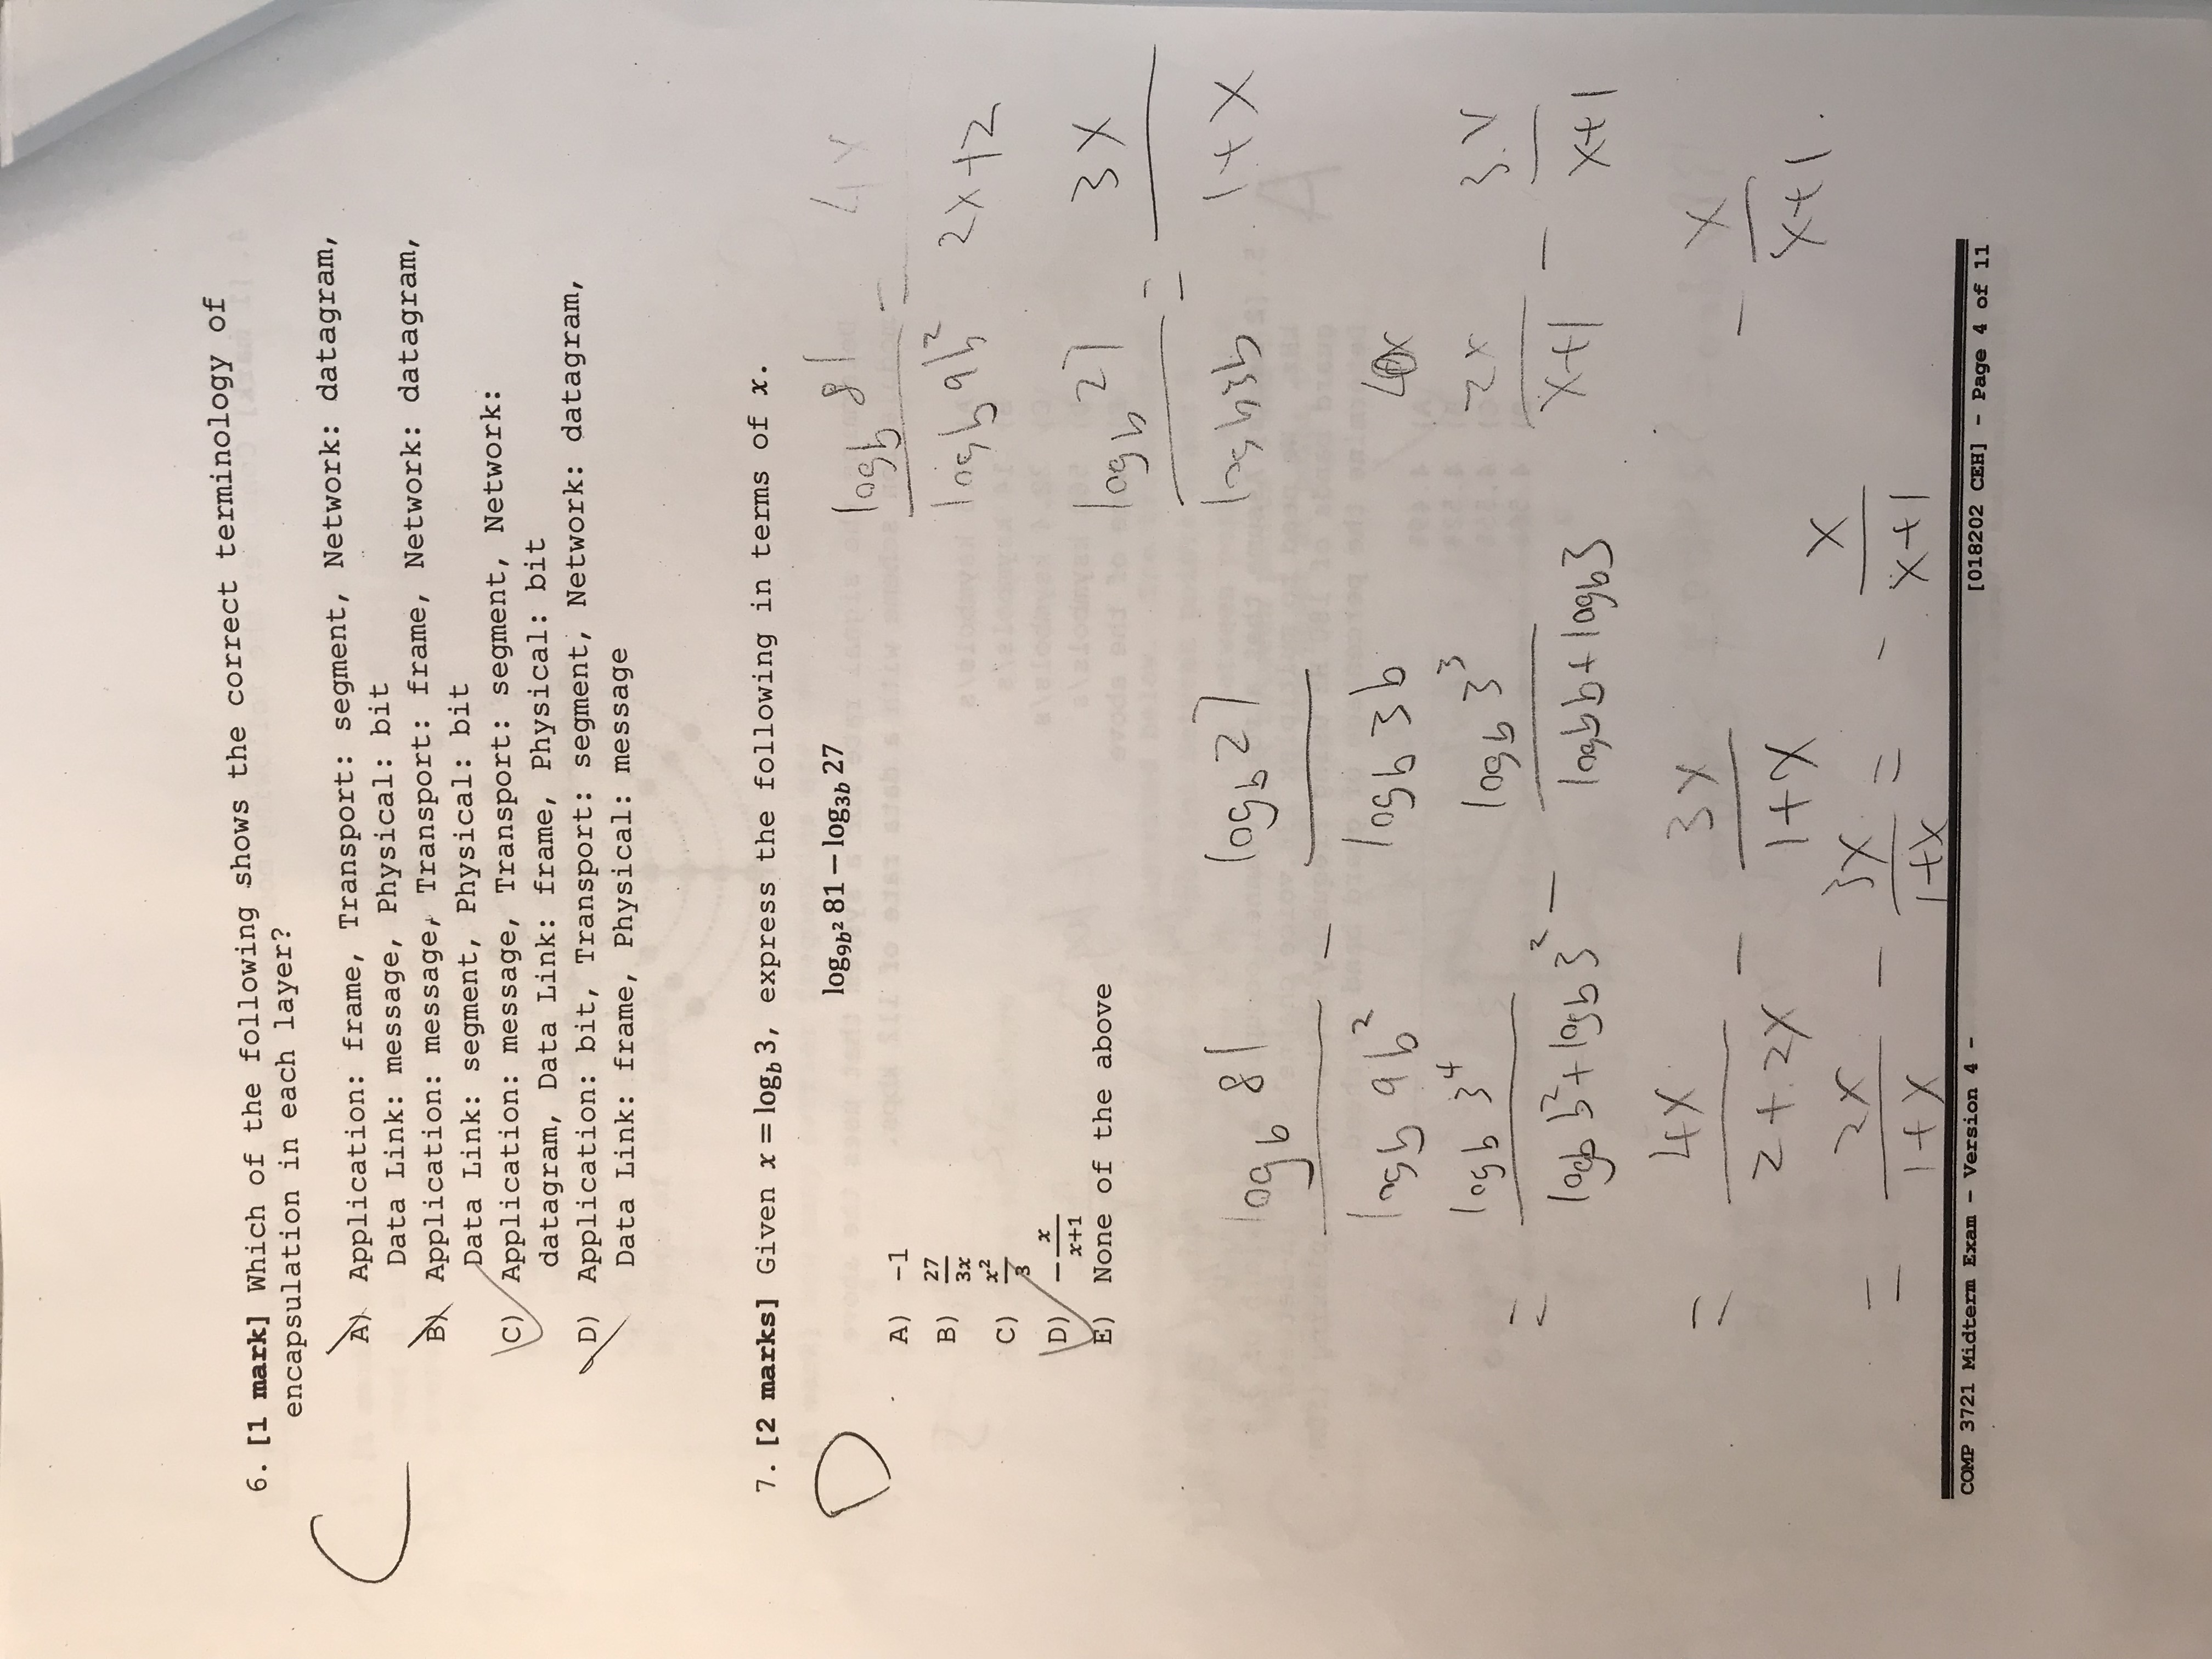 6. [1 mark] Which of the following shows the correct terminology of
encapsulation in each layer?
C
A) Application: frame, Transport: segment, Network: datagram,
Data Link: message, Physical: bit
B) Application: message, Transport: frame, Network: datagram,
Data Link: segment, Physical: bit
C) Application: message, Transport: segment, Network:
datagram, Data Link: frame, Physical: bit
D) Application: bit, Transport: segment, Network: datagram,
Data Link: frame, Physical: message
7. [2 marks] Given x = log_b 3, express the following in terms of x.
D
log_{9b²} 81 − log_{3b} 27
A) -1
B) 27/3x
C) x²/3
D) − x/(x+1)
E) None of the above
log_b 81 / log_b 9b² = 4x / 2x+2
log_b 27 / log_b 3b = 3x / 1+x
log_b 81 / log_b 9b² − log_b 27 / log_b 3b
= log_b 3⁴ / log_b b² + log_b 3² − log_b 3³ / log_b b + log_b 3
2x / x+1 − 3x / x+1
= 4x / 2+2x − 3x / 1+x
− x / x+1.
= 2x / 1+x − 3x / 1+x = − x / x+1
COMP 3721 Midterm Exam – Version 4 –
[018202 CEH] - Page 4 of 11